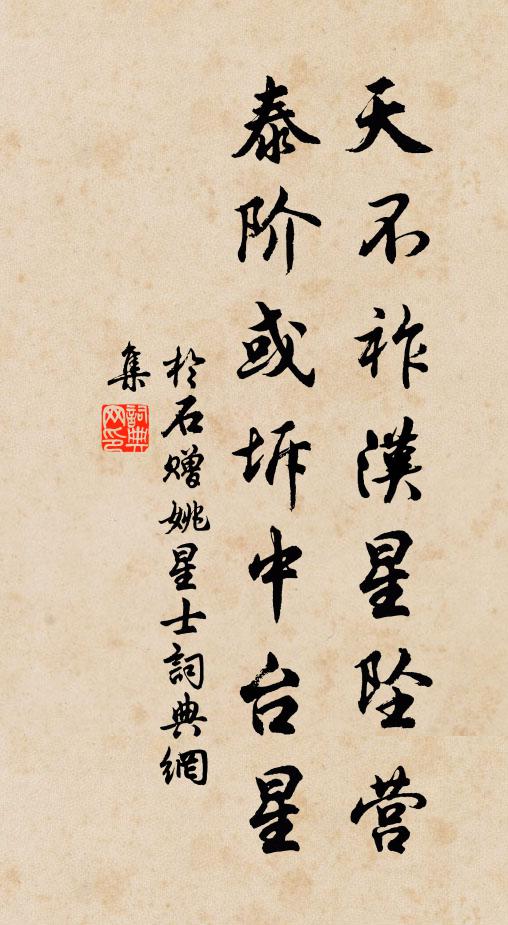 天不祚漢星坠营
泰阶或坼中台星
於石赠姚星士詞典網
集
詞典
网印